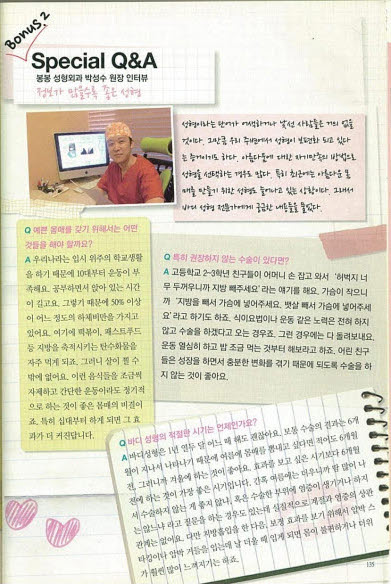 BONUS.2
Special Q&A
봉봉 성형외과 박성수 원장 인터뷰
정보가 많을수록 좋은 성형
성형이라는 단어가 어색하거나 낯선 사람들은 거의 없을
것이다. 그만큼 우리 주변에서 성형이 보편화 되고 있다
는 증거이기도 하다. 아름다움에 대한 자기만족의 방법으로
성형을 선택하는 경우도 많다. 특히 최근에는 아름다운 몸
매를 만들기 위한 성형도 늘어나고 있는 상황이다. 그래서
바디 성형 전문가에게 궁금한 내용들을 물었다.
Q 예쁜 몸매를 갖기 위해서는 어떤
것들을 해야 할까요?
A 우리나라는 입시 위주의 학교생활
을 하기 때문에 10대부터 운동이 부
족해요. 공부하면서 앉아 있는 시간
이 길고요. 그렇기 때문에 50% 이상
이 어느 정도의 하체비만을 가지고
있어요. 여기에 떡볶이, 패스트푸드
등 지방을 축적시키는 탄수화물을
자주 먹게 되죠. 그러니 살이 찔 수
밖에 없어요. 이런 음식들을 조금씩
자제하고 간단한 운동이라도 정기적
으로 하는 것이 좋은 몸매의 비결이
죠. 특히 십대부터 하게 되면 그 효
과가 더 커진답니다.
Q 특히 권장하지 않는 수술이 있다면?
A 고등학교 2~3학년 친구들이 어머니 손 잡고 와서 '허벅지 너
무 두꺼우니까 지방 빼주세요'라는 얘기를 해요. 가슴이 작으니
까 '지방을 빼서 가슴에 넣어주세요. 뱃살 빼서 가슴에 넣어주세
요'라고 하기도 하죠. 식이요법이나 운동 같은 노력은 전혀 하지
않고 수술을 하겠다고 오는 경우죠. 그런 경우에는 다 돌려보내요.
운동 열심히 하고 밥 조금 먹는 것부터 해보라고 하죠. 어린 친구
들은 성장을 하면서 충분한 변화를 겪기 때문에 되도록 수술을 하
지 않는 것이 좋아요.
Q 바디 성형의 적절한 시기는 언제인가요?
A 바디성형은 1년 열두 달 어느 때 해도 괜찮아요. 보통 수술의 결과는 6개
월이 지나서 나타나기 때문에 여름에 몸매를 뽐내고 싶다면 적어도 6개월
전, 그러니까 겨울에 하는 것이 좋아요. 효과를 보고 싶은 시기보다 6개월
전에 하는 것이 가장 좋은 시기입니다. 간혹 여름에는 더우니까 땀 많이 나
서 수술하지 않는 게 좋지 않냐, 혹은 수술한 부위에 염증이 생기거나 하지
는 않느냐 라고 질문을 하는 경우도 있는데 실질적으로 계절과 염증의 상관
관계는 없어요. 다만 지방흡입을 한 다음, 보정 효과를 보기 위해서 압박 스
타킹이나 압박 거들을 입는데 날 더울 때 입게 되면 몸이 불편하거나 더위
가 훨씬 많이 느껴지기는 하죠.
135